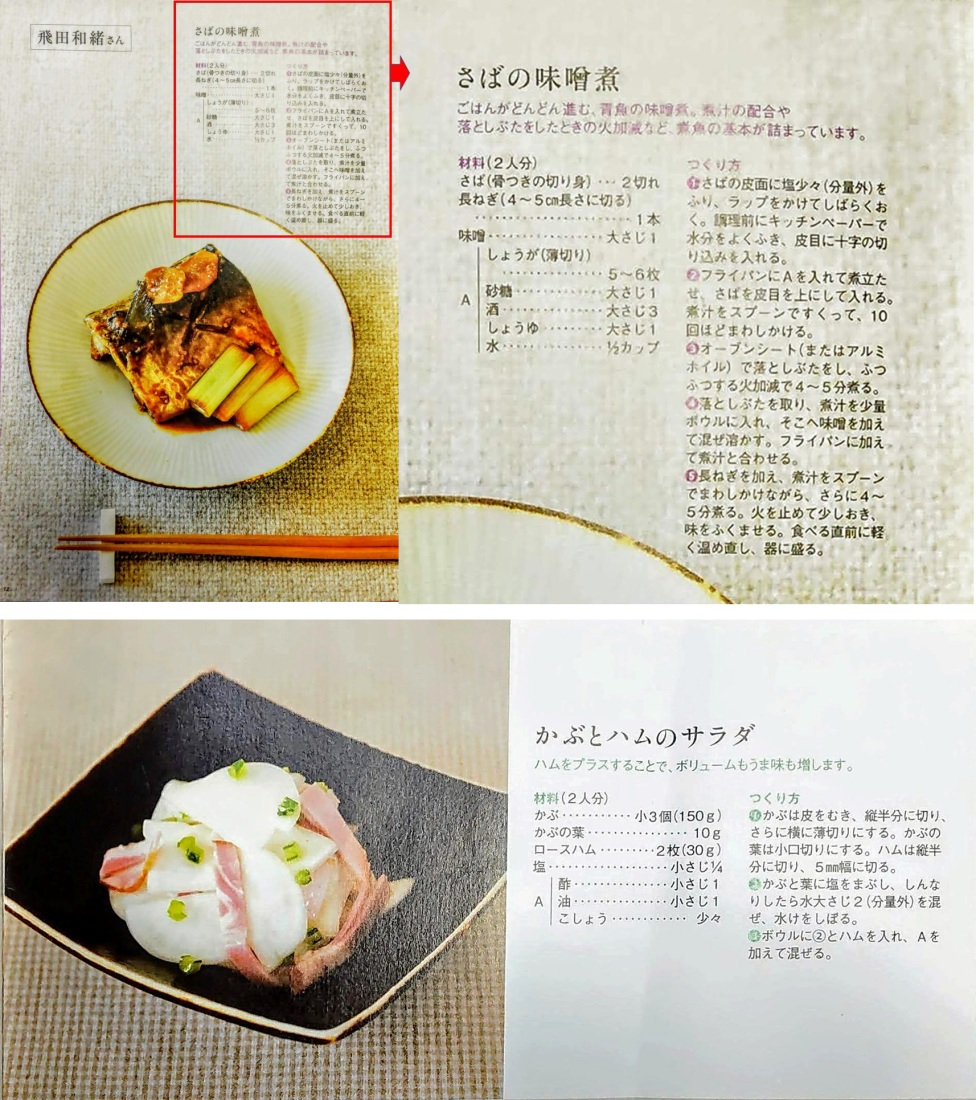 飛田和緒さん
さばの味噌煮
ごはんがどんどん進む、青魚の味噌煮。煮汁の配合や
落としぶたをしたときの火加減など、煮魚の基本が詰まっています。
材料(2人分)
さば(骨つきの切り身)…2切れ
長ねぎ(4〜5㎝長さに切る)
…………………1本
味噌……………大さじ1
A
しょうが(薄切り)
……………5〜6枚
砂糖……………大さじ1
酒………………大さじ3
しょうゆ………大さじ1
水………………½カップ
つくり方
❶さばの皮面に塩少々(分量外)を
ふり、ラップをかけてしばらくお
く。調理前にキッチンペーパーで
水分をよくふき、皮目に十字の切
り込みを入れる。
❷フライパンにAを入れて煮立た
せ、さばを皮目を上にして入れる。
煮汁をスプーンですくって、10
回ほどまわしかける。
❸オーブンシート(またはアルミ
ホイル)で落としぶたをし、ふつ
ふつする火加減で4〜5分煮る。
❹落としぶたを取り、煮汁を少量
ボウルに入れ、そこへ味噌を加え
て混ぜ溶かす。フライパンに加え
て煮汁と合わせる。
❺長ねぎを加え、煮汁をスプーン
でまわしかけながら、さらに4〜
5分煮る。火を止めて少しおき、
味をふくませる。食べる直前に軽
く温め直し、器に盛る。
かぶとハムのサラダ
ハムをプラスすることで、ボリュームもうま味も増します。
材料(2人分)
かぶ…………小3個(150g)
かぶの葉……………10g
ロースハム………2枚(30g)
塩………………小さじ¼
A
酢……………小さじ1
油……………小さじ1
こしょう…………少々
つくり方
❶かぶは皮をむき、縦半分に切り、
さらに横に薄切りにする。かぶの
葉は小口切りにする。ハムは縦半
分に切り、5㎜幅に切る。
❷かぶと葉に塩をまぶし、しんな
りしたら水大さじ2(分量外)を混
ぜ、水けをしぼる。
❸ボウルに②とハムを入れ、Aを
加えて混ぜる。